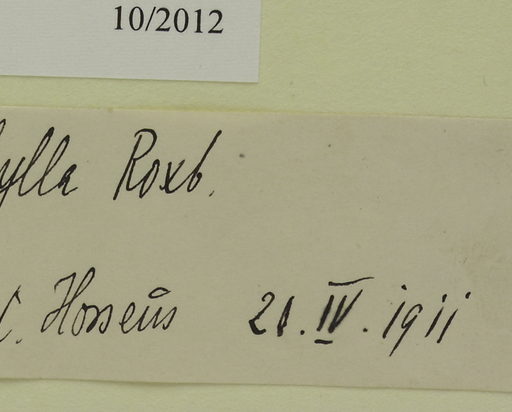 10/2012
ylla Roxb.
C. Hosseus 21. IV. 1911